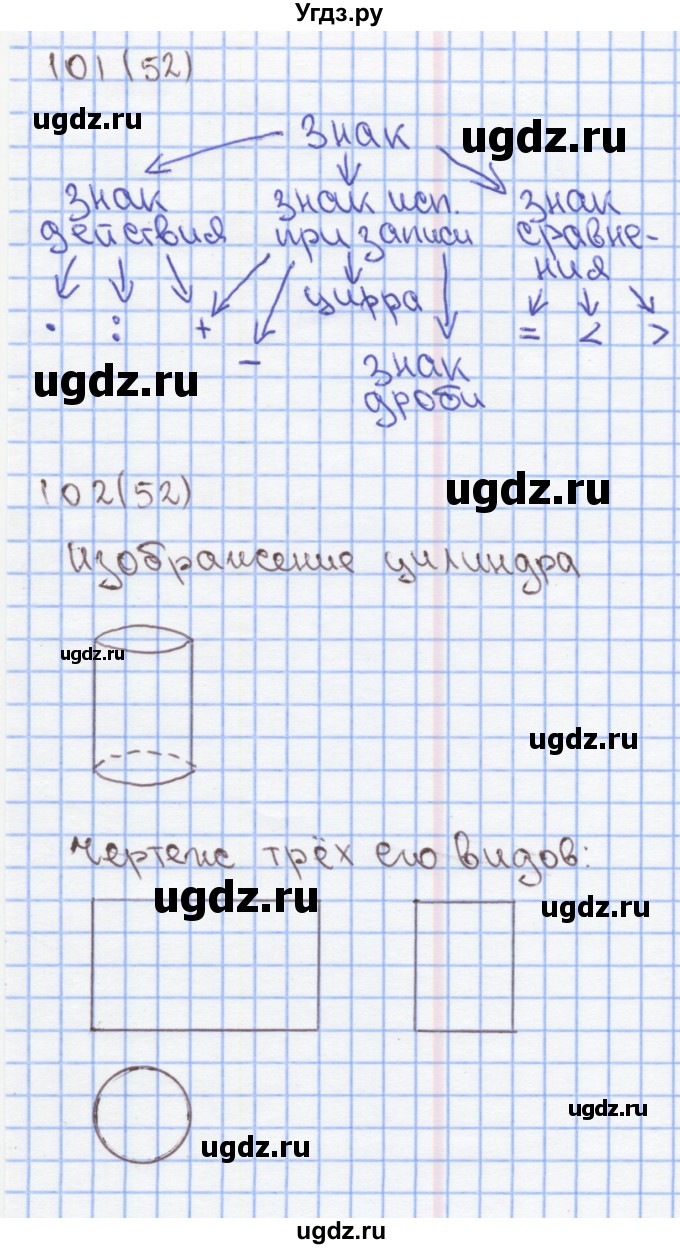 Угдз.ру
101 (52)
ugdz.ru
знак
ugdz.ru
знак действия
знак исп. при записи
знак сравне-
ния
цифра
· : + − = < >
ugdz.ru
знак дроби
102(52)
ugdz.ru
Изображение цилиндра
ugdz.ru
ugdz.ru
Чертеж трёх его видов:
ugdz.ru
ugdz.ru
ugdz.ru
ugdz.ru
ugdz.ru